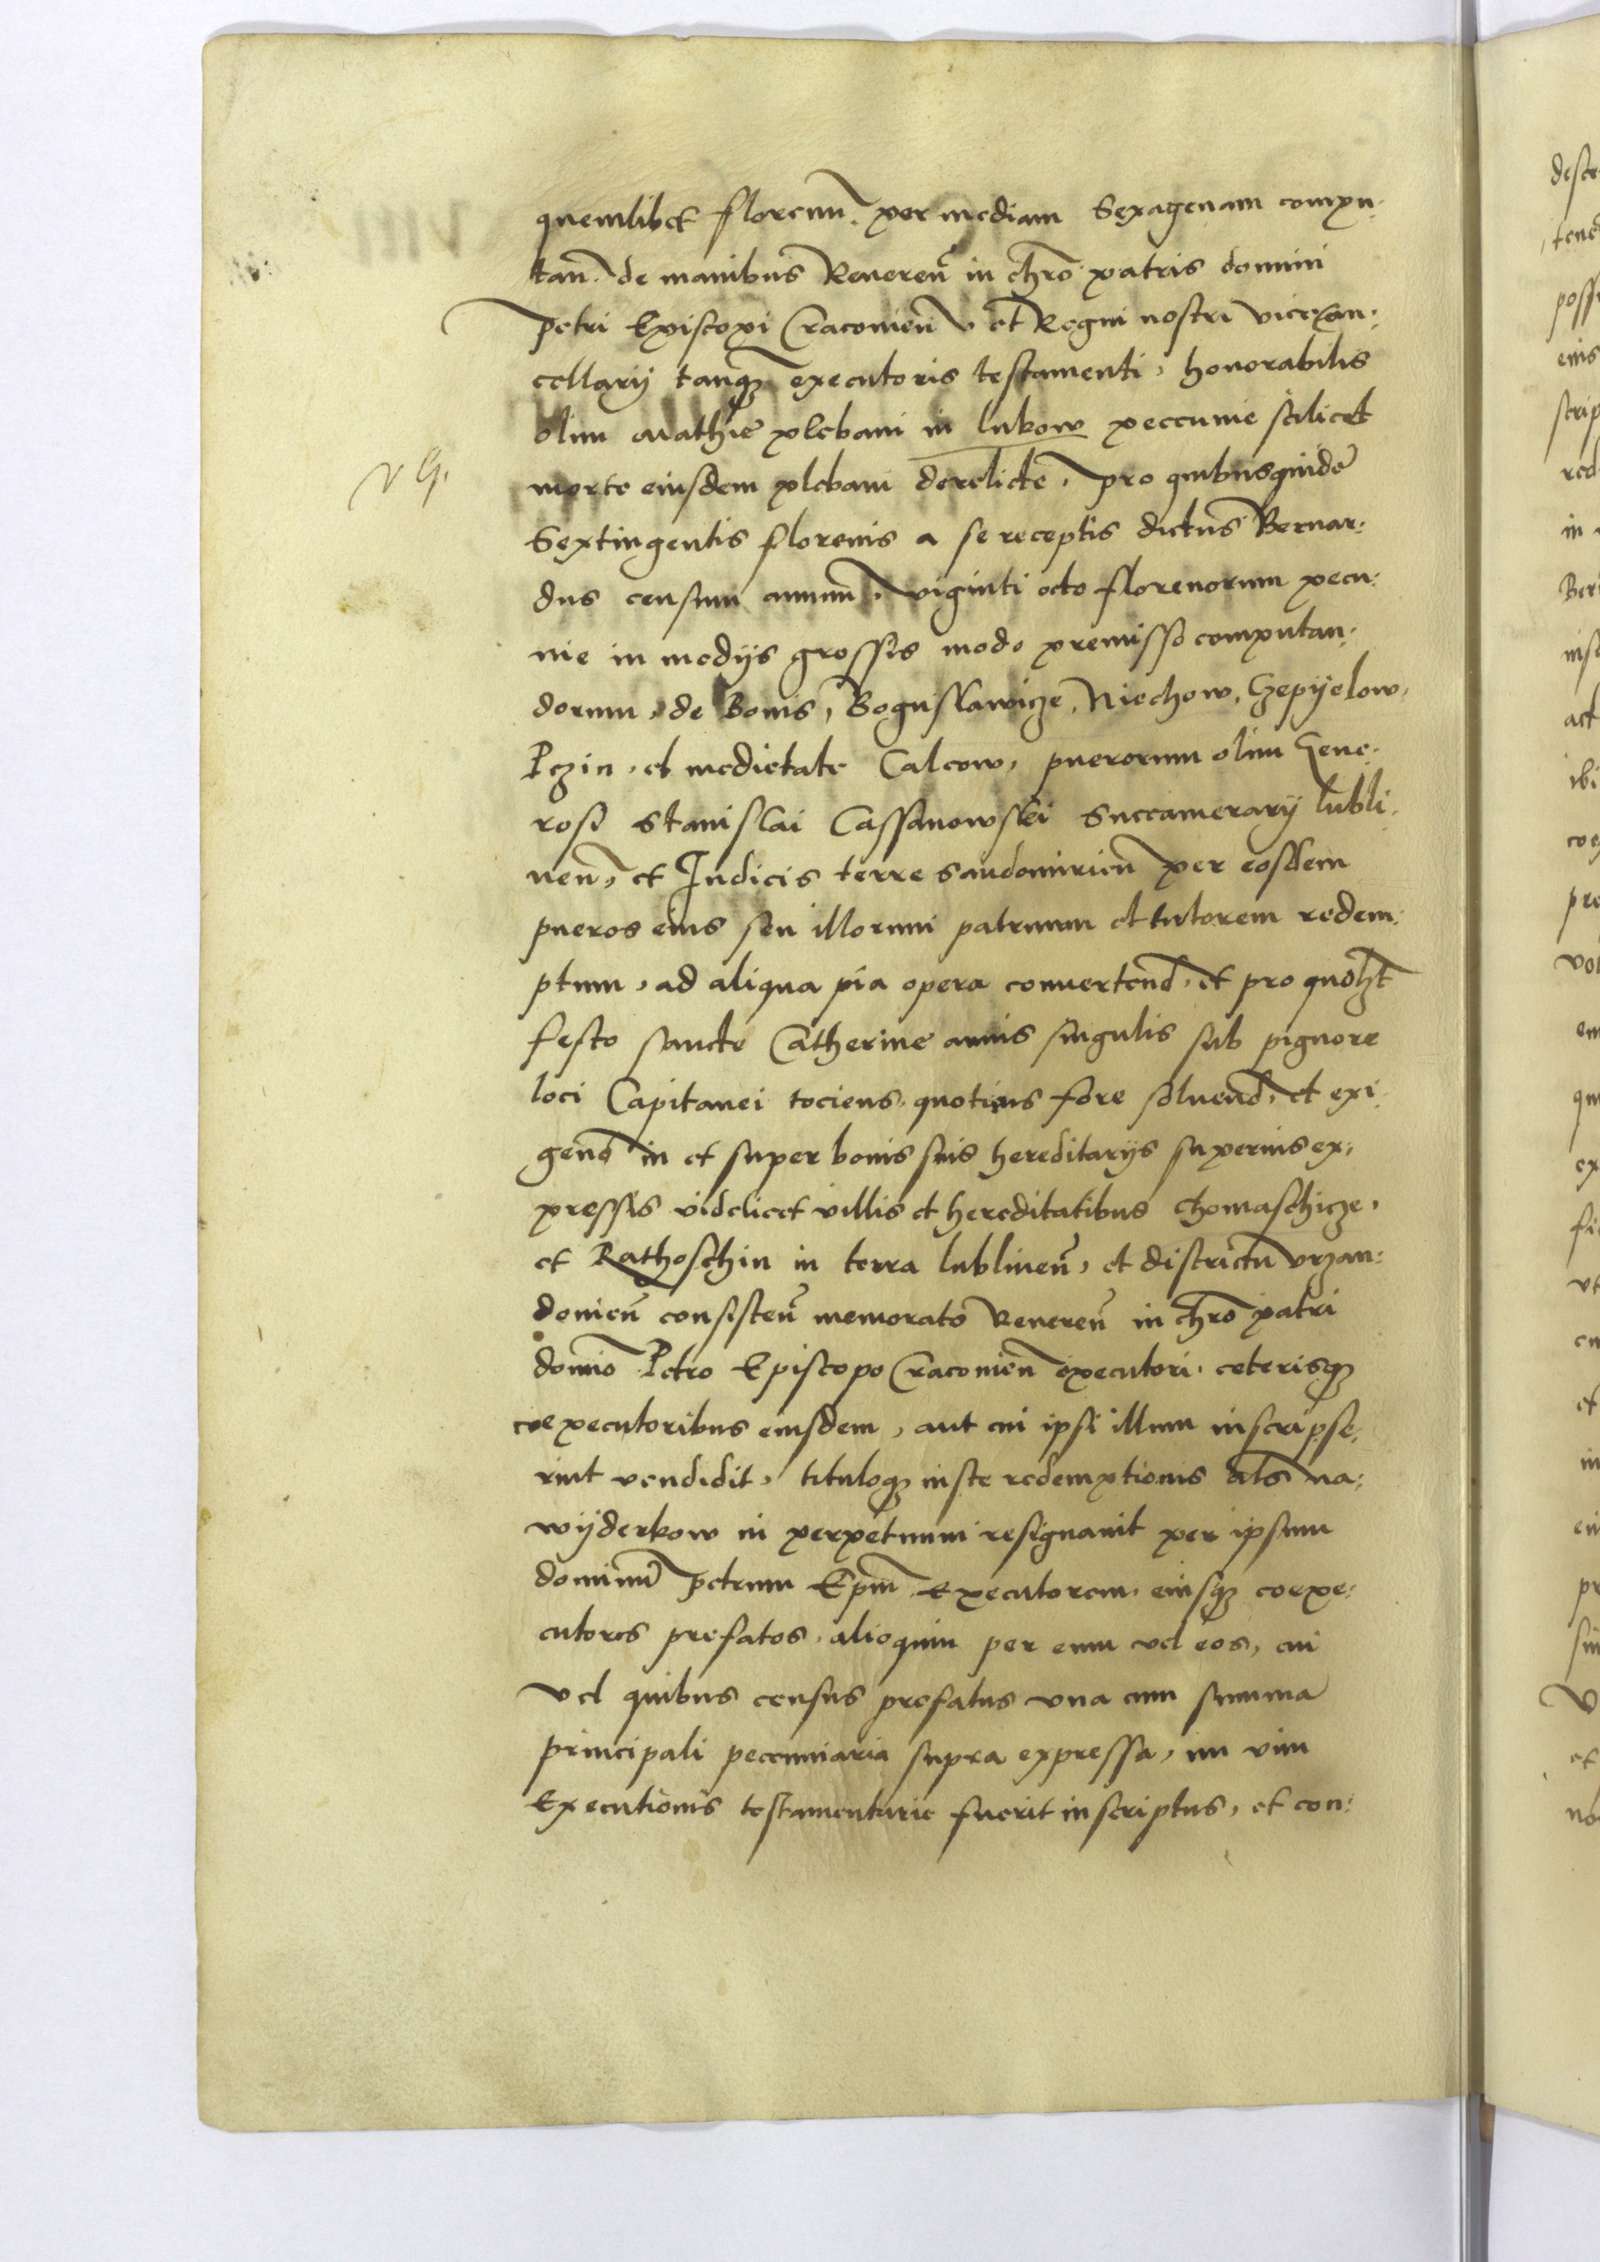 quemlibet florenū. per mediam Sexagenam compu:
tan̄. de manibus Reuereñ in chr̄o patris domini
Petri Episcopi Cracouieñ et Regni nostri vicecan:
cellarij tanq̄ȝ executoris testamenti, honorabilis
olim Mathie plebani in lukow peccunie scilicet
morte eiusdem plebani derelicte, Pro quibusquidē
Sextingentis florenis a se receptis dictus Bernar:
dus censum annuū, viginti octo florenorum pecu:
nie in medijs grossis modo premisso computan:
dorum, de Bonis, Boguslawicze, Niechow, Czepyelow,
Pczin, et medietate Calcow, puerorum olim Gene:
rosi Stanislai Cassanowski Succamerarij lubli:
neñ, et Iudicis terre Sandomirieñ per eosdem
pueros eius seu illorum patruum et tutorem redem:
ptum, ad aliqua pia opera conuertend. et pro quolȝt
festo sancte Catherine annis singulis sub pignore
loci Capitanei tociens, quotiens fore soluend, et exi:
gend in et super bonis suis hereditarijs superius ex:
pressis videlicet villis et hereditatibus Thomaschicze,
et Rathoschin in terra lublineñ, et districtu vrzan:
douieñ consisteñ memorato Reuereñ in chr̄o patri
domīo Petro Episcopo Cracouieñ executori, ceterisqȝ
coexecutoribus eiusdem, aut cui ipsi illum inscripse:
rint vendidit, tituloqȝ iuste redemptionis als na:
wyderkow in perpetuum resignauit per ipsum
dominū Petrum Epm̄ Executorem, eiusqȝ coexe:
cutores prefatos, alioquin per eum vel eos, cui
vel quibus census prefatus vna cum summa
principali peccuniaria supra expressa, im vim
Executionis testamentarie fuerit inscriptus, et con: